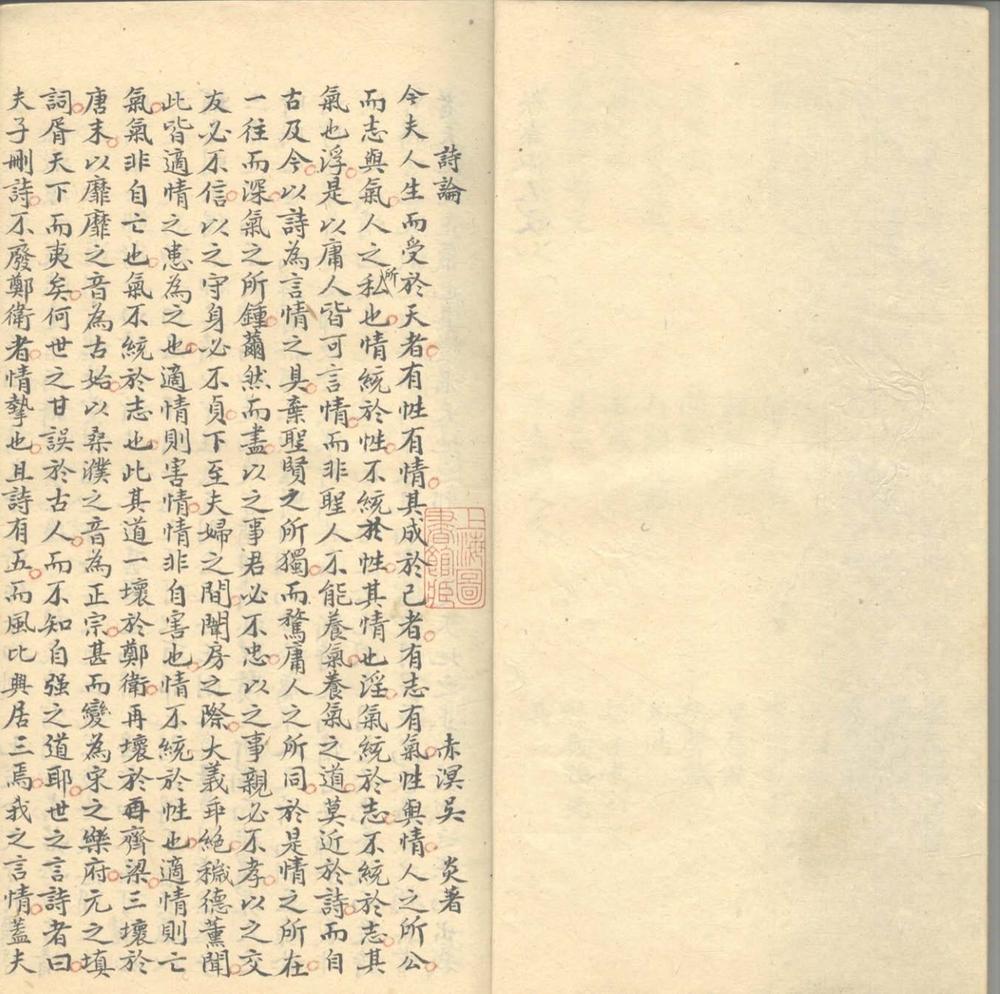 詩論　赤溟吳　炎著
今夫人生而受於天者有性有情其成於己者有志有氣性與情人之所公
而志與氣人之所私也情統於性不統於性其情也淫氣統於志不統於志其
氣也浮是以庸人皆可言情而非聖人不能養氣養氣之道莫近於詩而自
古及今以詩為言情之具棄聖賢之所獨而騖庸人之所同於是情之所在
一往而深氣之所鍾薾然而盡以之事君必不忠以之事親必不孝以之交
友必不信以之守身必不貞下至夫婦之間閨房之際大義乖絕穢德薰聞
此皆適情之患為之也適情則害情情非自害也情不統於性也適情則亡
氣氣非自亡也氣不統於志也此其道一壞於鄭衛再壞於齊梁三壞於
唐末以靡靡之音為古始以桑濮之音為正宗甚而變為宋之樂府元之填
詞胥天下而夷矣何世之甘誤於古人而不知自强之道耶世之言詩者曰
夫子刪詩不廢鄭衛者情摯也且詩有五而風比興居三焉我之言情蓋夫
上海圖書館藏